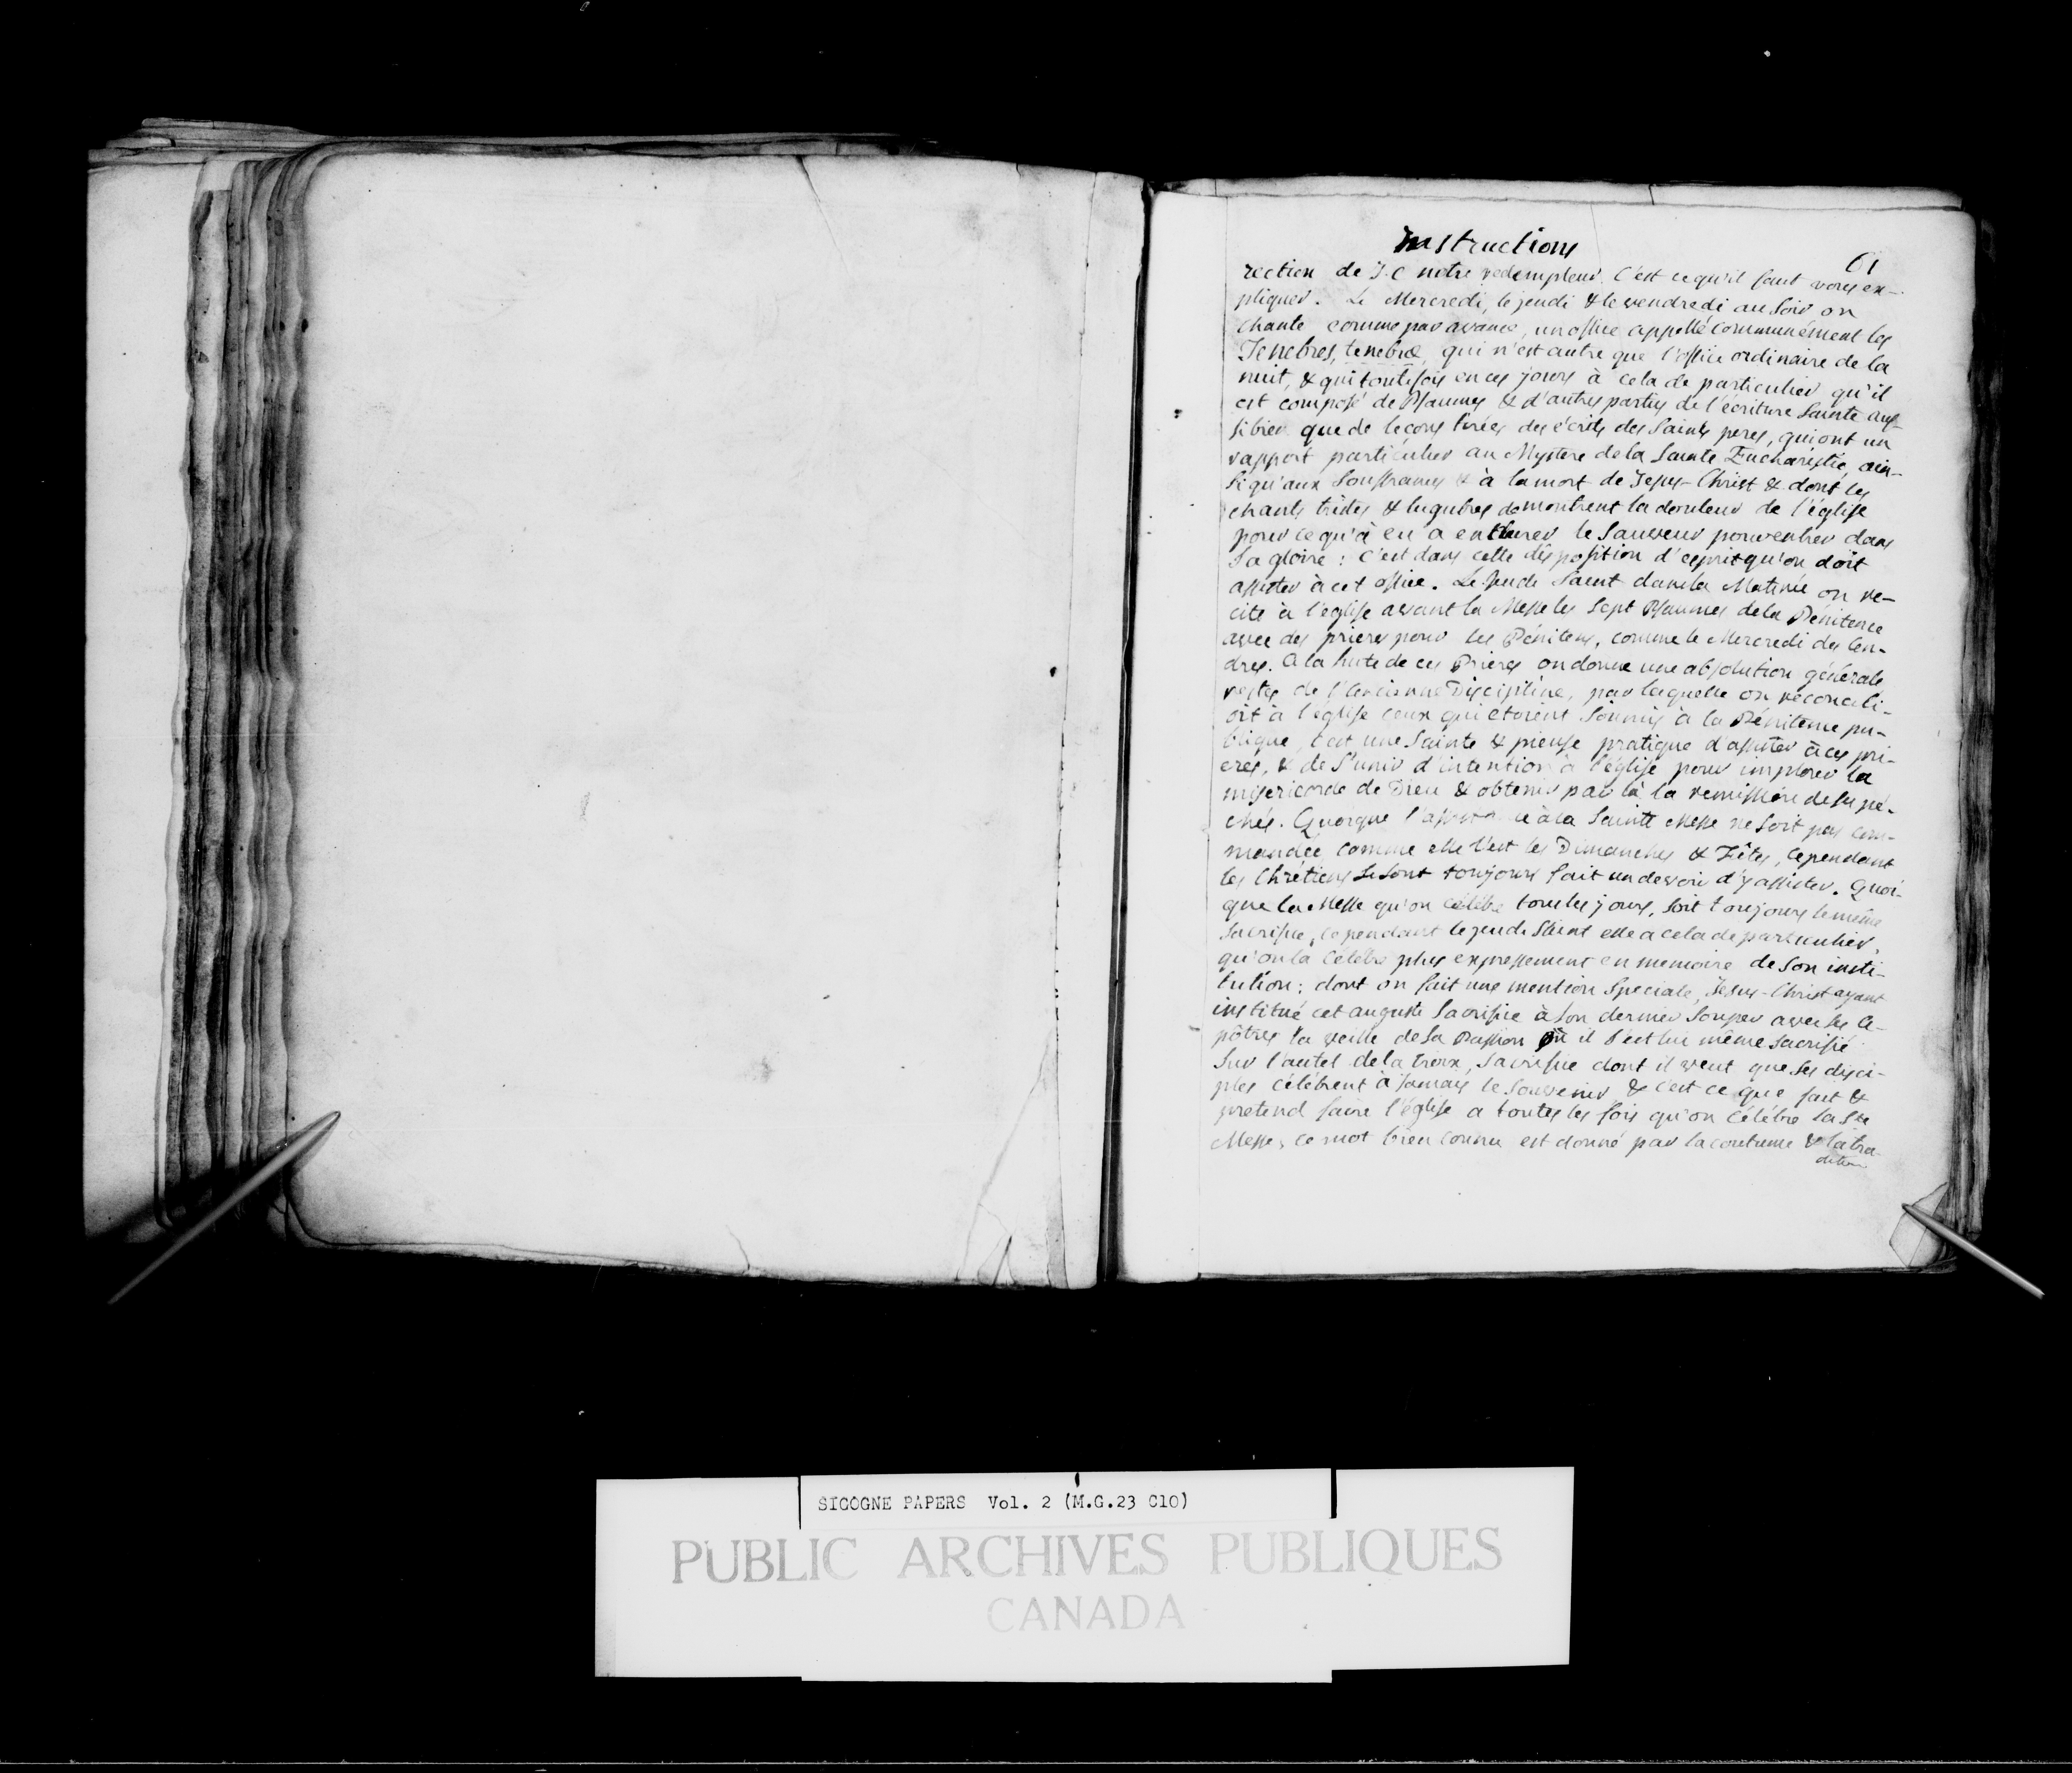 Instructions
61
rection de J.C notre redempteur. C'est ce qu'il faut vous ex-
pliquer. Le Mercredi, le jeudi & le vendredi au soir on
chante comme par avance, un office appellé communément les
Tenebres, tenebræ, qui n'est autre que l'office ordinaire de la
nuit, & qui toutefois en ces jours à cela de particulier qu'il
est composé de Psaumes & d'autres parties de l'écriture Sainte aus-
si bien que de leçons tirées des écrits des Saints peres, qui ont un
rapport particulier au Mystere de la Sainte Eucharistie, ain-
si qu'aux souffrances & à la mort de Jesus-Christ & dont les
chants tristes & lugubres demontrent la douleur de l'église
pour ce qu'à eu a endurer le Sauveur pour entrer dans
Sa gloire : c'est dans cette disposition d'esprit qu'on doit
assister à cet office. Le Jeudi Saint dans la Matinée on re-
cite à l'eglise avant la Messe les Sept Psaumes de la Pénitence
avec des prieres pour les Pénitens, comme le Mercredi des Cen-
dres. A la suite de ces Prieres on donne une absolution générale
restes de l'Ancienne Discipline, par laquelle on reconcili-
oit à l'église ceux qui etoient soumis à la Pénitence pu-
blique, c'est une Sainte & pieuse pratique d'assister à ces pri-
eres, & de s'unir d'intention à l'église pour implorer la
misericorde de Dieu & obtenir par là la remission de ses pé-
chés. Quoique l'assistance à la Sainte Messe ne soit pas com-
mandée comme elle l'est les Dimanches & Fêtes, cependant
les Chrétiens se sont toujours fait un devoir d'y assister. Quoi-
que la Messe qu'on célébre tous les jours, soit toujours le même
Sacrifice, cependant le jeudi Saint elle a cela de particulier,
qu'on la Célébre plus expressement en memoire de son insti-
tution : dont on fait une mention Speciale, Jesus-Christ ayant
institué cet auguste Sacrifice à son dernier souper avec ses A-
pôtres la veille de sa Passion où il s'est lui même sacrifié
Sur l'autel de la Croix, Sacrifice dont il veut que ses disci-
ples célébrent à jamais le Souvenir, & c'est ce que fait &
pretend faire l'église a toutes les fois qu'on Célébre la Ste
Messe, ce mot bien connu est donné par la coutume & la tra-
dition
SIGOGNE PAPERS Vol. 2 (M.G.23 C10)
PUBLIC ARCHIVES PUBLIQUES
CANADA